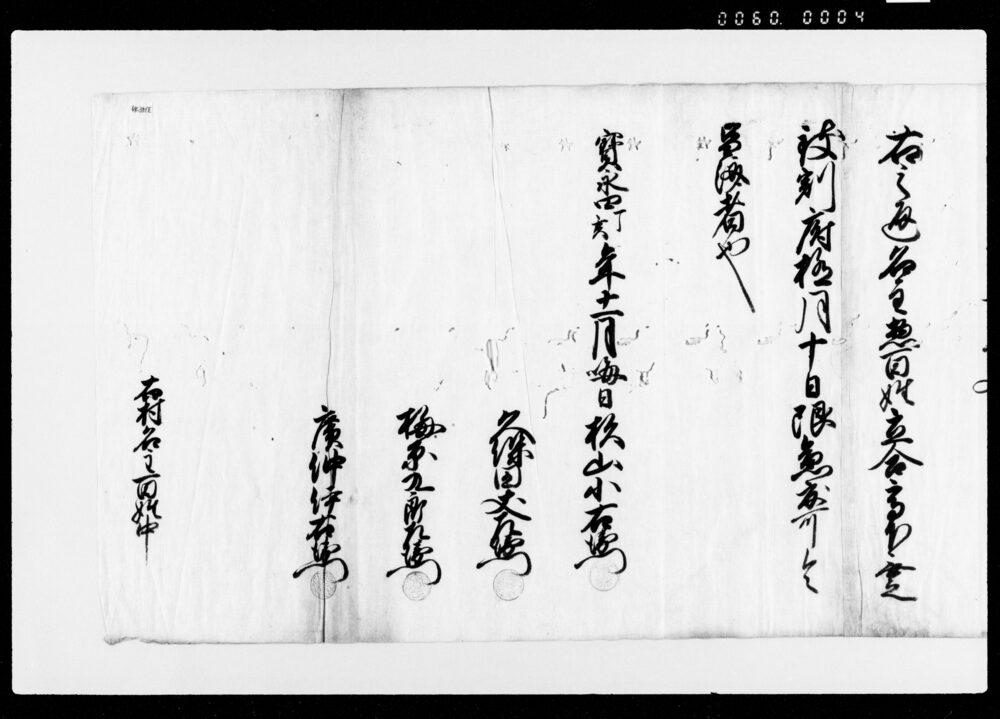 0060. 0004
右之通名主惣百姓立合高下無之
致割府極月十日限急度可令
皆済者也
寳永四丁亥年十一月晦日 杦山小右衛門
久保田丈右衛門
梅原九郎右衛門
廣沖伊右衛門
右村名主百姓中